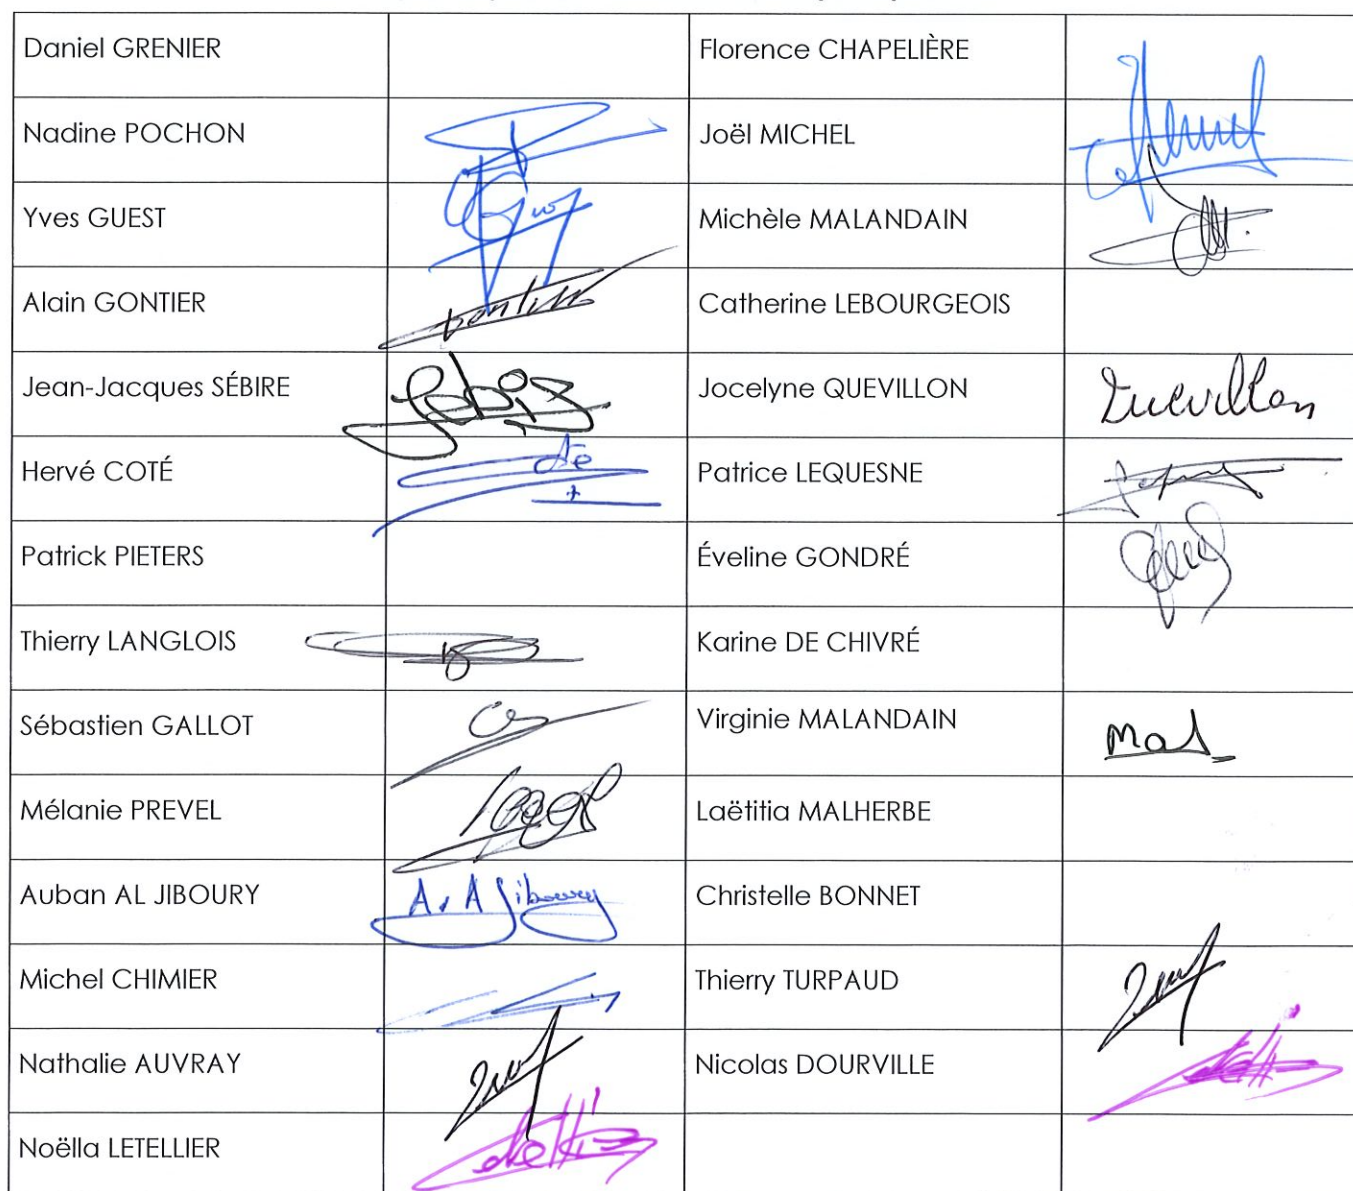 Daniel GRENIER
Florence CHAPELIÈRE
Nadine POCHON
Joël MICHEL
Yves GUEST
Michèle MALANDAIN
Alain GONTIER
Catherine LEBOURGEOIS
Jean-Jacques SÉBIRE
Jocelyne QUEVILLON
Quevillon
Hervé COTÉ
Patrice LEQUESNE
Patrick PIETERS
Éveline GONDRÉ
Thierry LANGLOIS
Karine DE CHIVRÉ
Sébastien GALLOT
Virginie MALANDAIN
Mal
Mélanie PREVEL
Laëtitia MALHERBE
Auban AL JIBOURY
A. A Jiboury
Christelle BONNET
Michel CHIMIER
Thierry TURPAUD
Nathalie AUVRAY
Nicolas DOURVILLE
Noëlla LETELLIER